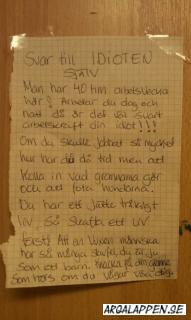 Svar till IDIOTEN
SJÄLV
Man har 40 tim arbetsvecka
här? Arbetar du dag och
natt då är det väl svart
arbetskraft din idiot!!!
Om du skulle jobbat så mycket
hur har då du tid men att
kolla in vad grannarna gör
och att fota hundarna.
Du har ett jätte tråkigt
liv, så skaffa ett LIV
först! Att en vuxen människa
har så många stavfel, du är ju
som ett barn. Knacka på din granne
som hörs om du vågar
ARGALAPPEN.SE